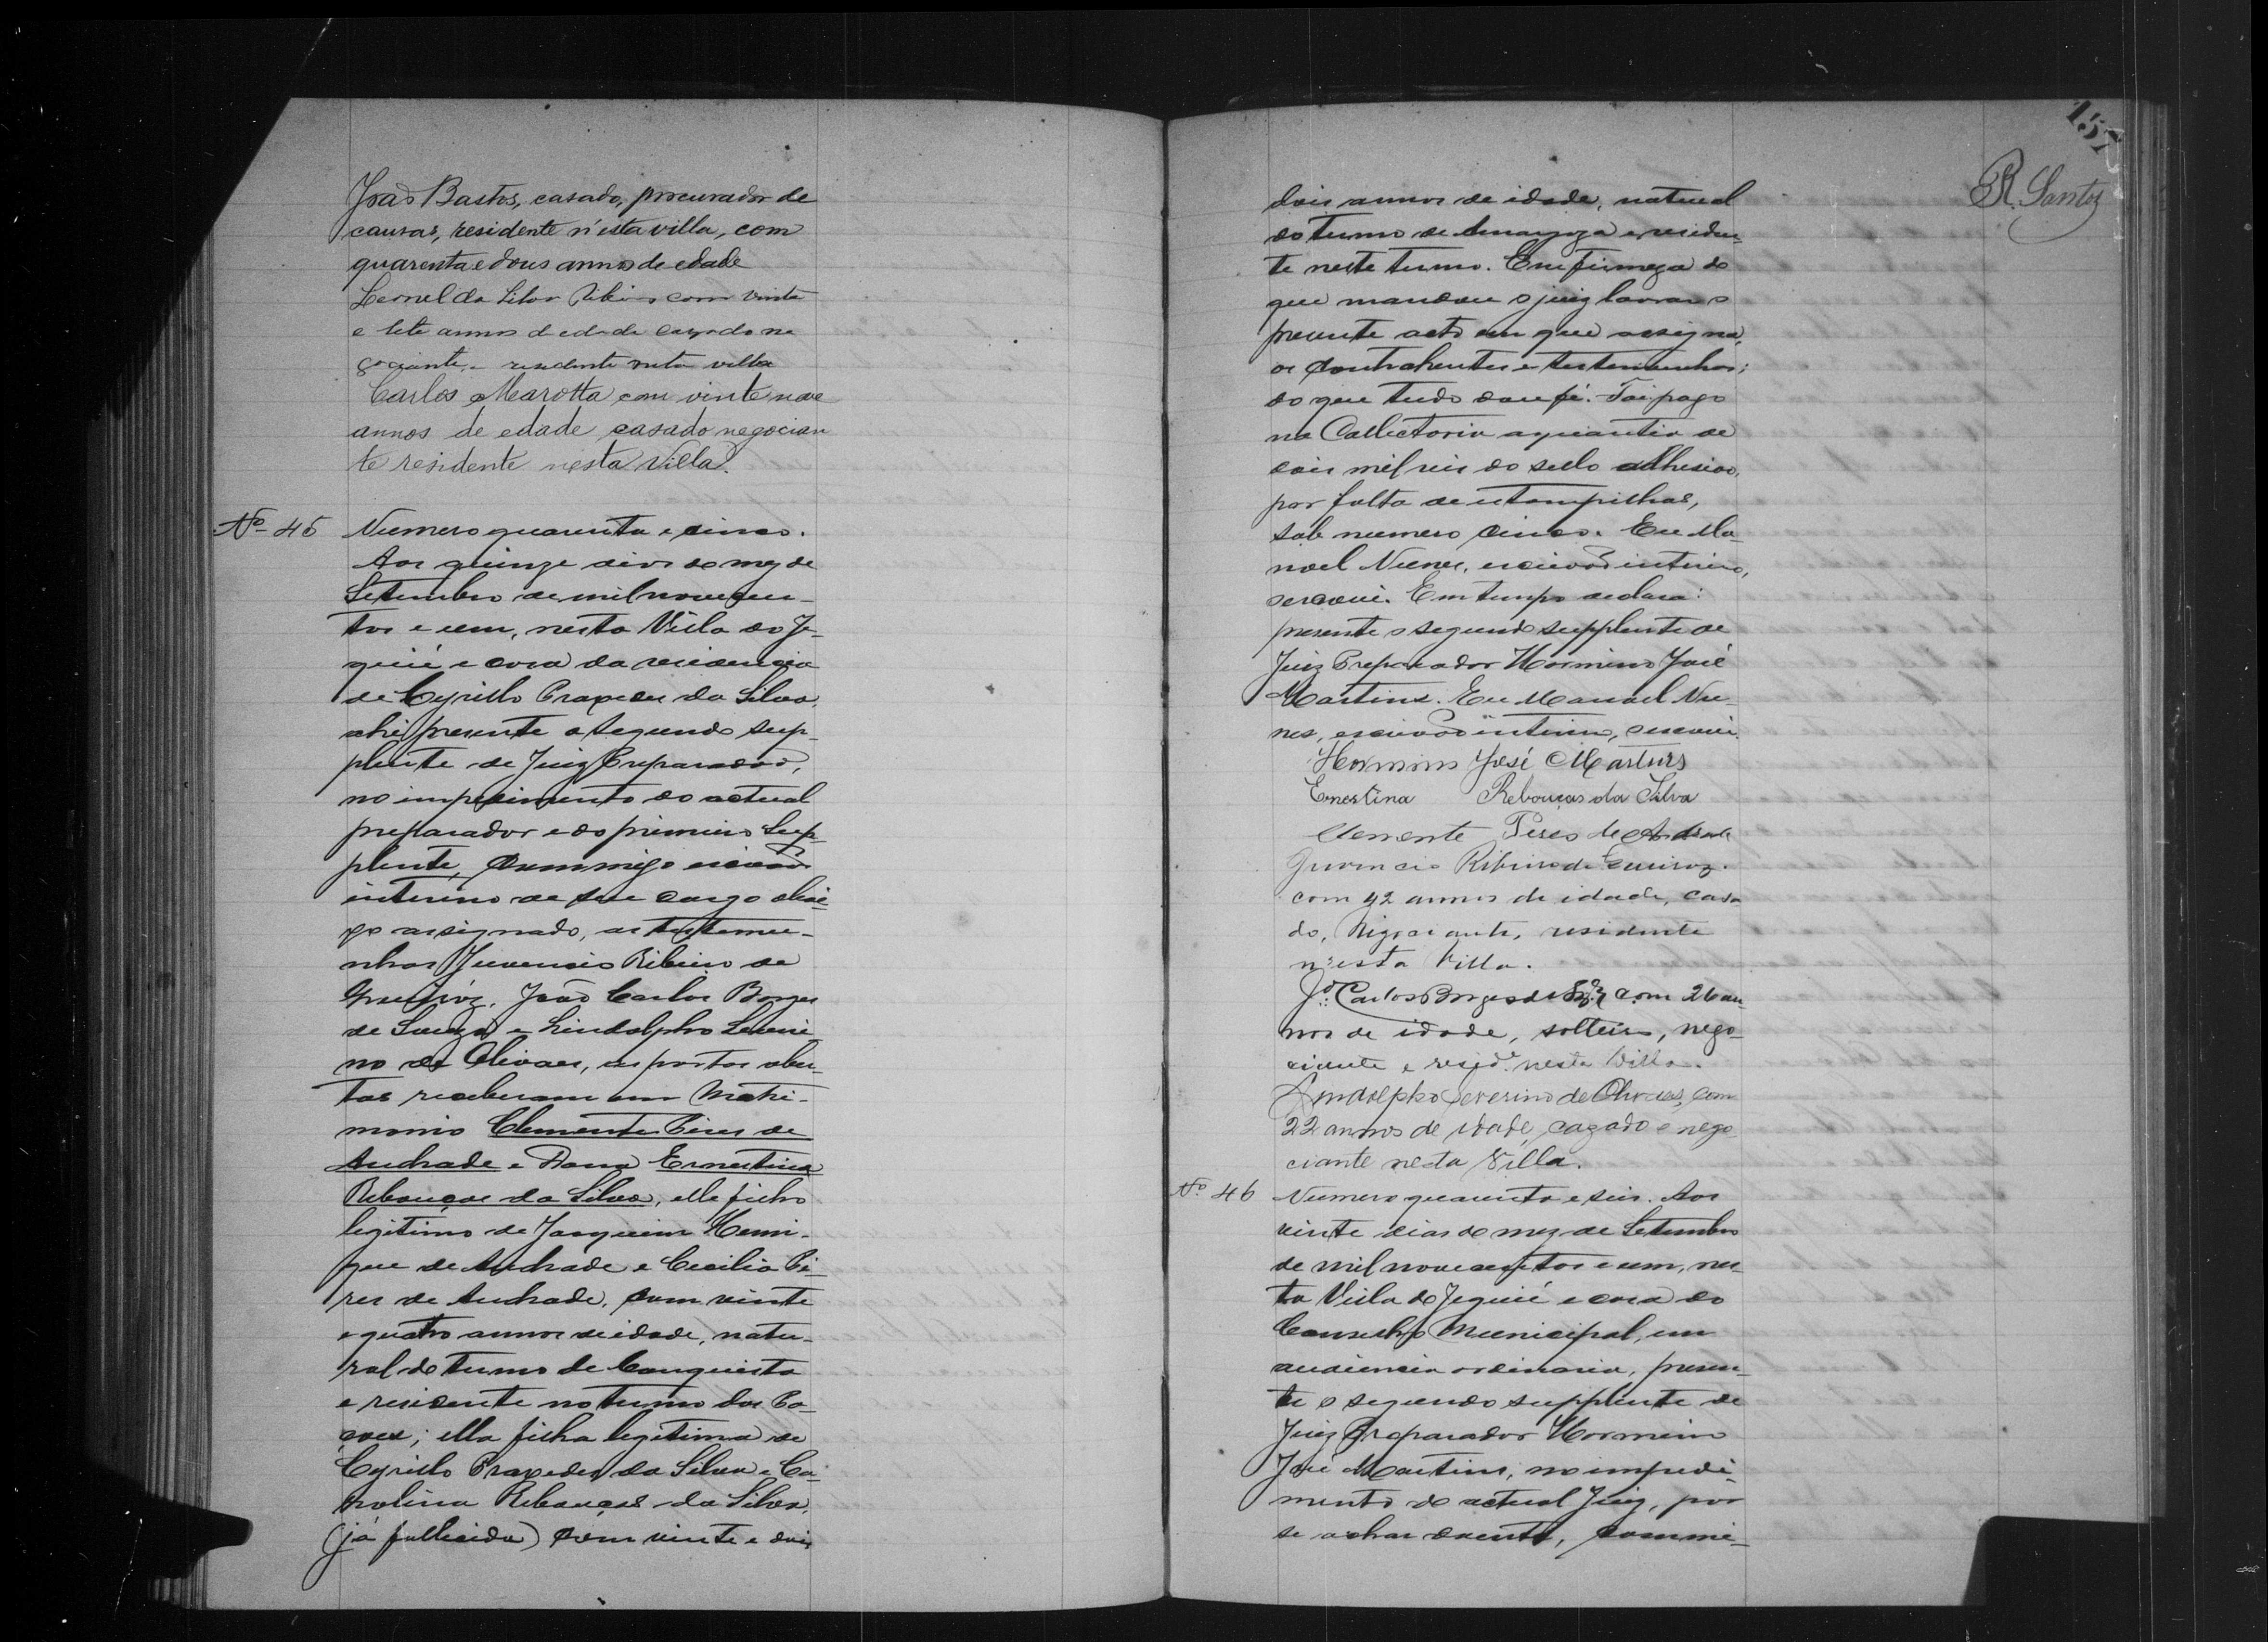 João Bastos, casado, procurador de
causas, residente n'esta villa, com
quarenta e dous annos de edade
Leonel da Silva Ribeiro com vinte
e sete annos de edade cazado ne
gociante, e residente nesta villa
Carlos Marotta com vinte nove
annos de edade casado negocian
te residente nesta Villa.
Nº 45 Numero quarenta e cinco.
Aos quinze dias do mez de
Setembro de mil novecen-
tos e um, nesta Villa do Je-
quié e casa da residencia
de Cyrillo Praxedes da Silva,
ahi presente o segundo sup-
plente de Juiz Preparador,
no impedimento do actual
preparador e do primeiro Sup-
plente, commigo escrivão
interino de seu cargo abai-
xo assignado, as testemu-
nhas Juvencio Ribeiro de
Queiroz, João Carlos Borges
de Souza e Lindolpho Severi-
no de Olivaes, as portas aber-
tas receberam em Matri-
monio Clemente Pires de
Andrade e Dona Ernestina
Rebouças da Silva, elle filho
legitimo de Joaquim Henri-
que de Andrade e Cecilia Pi-
res de Andrade, com vinte
e quatro annos de idade, natu-
ral do termo de Conquista
e residente no termo dos Po-
ções; ella filha legitima de
Cyrillo Praxedes da Silva e Ca-
rolina Rebouças da Silva,
(já fallecida) com vinte e dois
157
R. Santos
dois annos de idade, natural
do termo de Amargoza e residen-
te neste termo. Em firmeza do
que mandou o juiz lavrar o
presente acto em que assigna,
os contrahentes e testemunhas;
do que tudo dou fé. Foi pago
na Collectoria a quantia de
dois mil reis do sello adhesivo,
por falta de estampilhas,
sob numero cinco. Eu Ma-
noel Nunes, escrivão interino,
escrevi. Em tempo declaro:
presente o segundo supplente de
Juiz Preparador Hormino José
Martins. Eu Manoel Nu-
nes, escrivão interino, escrevi.
Hormino José Martins
Ernestina Rebouças da Silva
Clemente Pires de Andrade
Juvencio Ribeiro de Queiroz.
com 42 annos de idade, casa
do, Negociante, residente
n'esta Villa.
Jº. Carlos Borges de Sza com 26 an
nos de idade, solteiro, nego-
ciante e resid.e nesta Villa.
Lindolpho Severino de Olivaes, com
22 annos de idade, cazado e nego
ciante nesta Villa.
Nº 46 Numero quarenta e seis. Aos
vinte dias do mez de Setembro
de mil novecentos e um, nes-
ta Villa do Jequié e casa do
Conselho Municipal, em
audiencia ordinaria, presen-
te o segundo supplente de
Juiz Preparador Hormino
José Martins, no impedi-
mento do actual Juiz, por
se achar doente, commi-